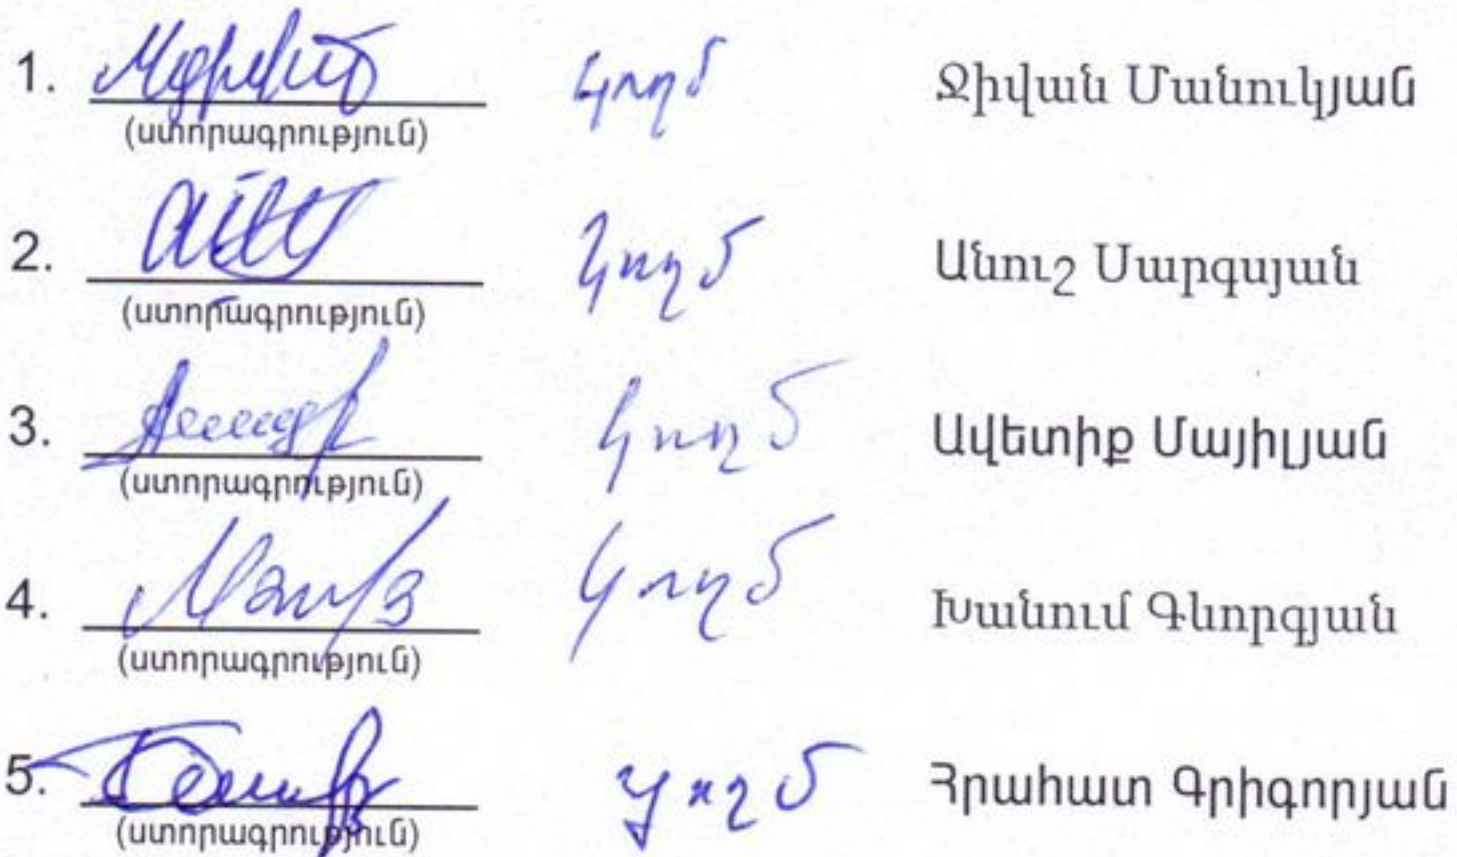 1. կողմ Ջիվան Մանուկյան
(ստորագրություն)
2. կողմ Անուշ Սարգսյան
(ստորագրություն)
3. կողմ Ավետիք Մայիլյան
(ստորագրություն)
4. կողմ Խանում Գևորգյան
(ստորագրություն)
5. կողմ Հրահատ Գրիգորյան
(ստորագրություն)